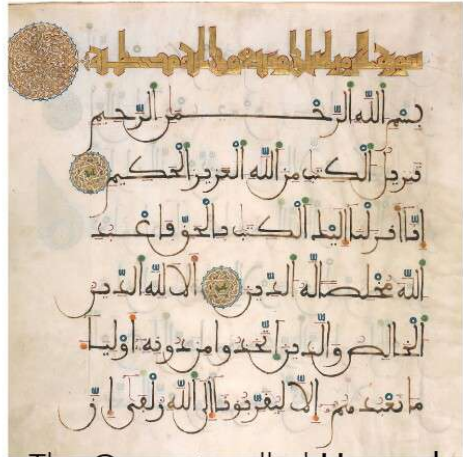 بسم الله الرحمن الرحيم
تنزيل الكتب من الله العزيز الحكيم
إنا أنزلنا إليك الكتب بالحق فاعبد
الله مخلصا له الدين ألا لله الدين
الخالص والذين اتخذوا من دونه أوليا
ما نعبدهم إلا ليقربونا إلى الله زلفى إن
The called